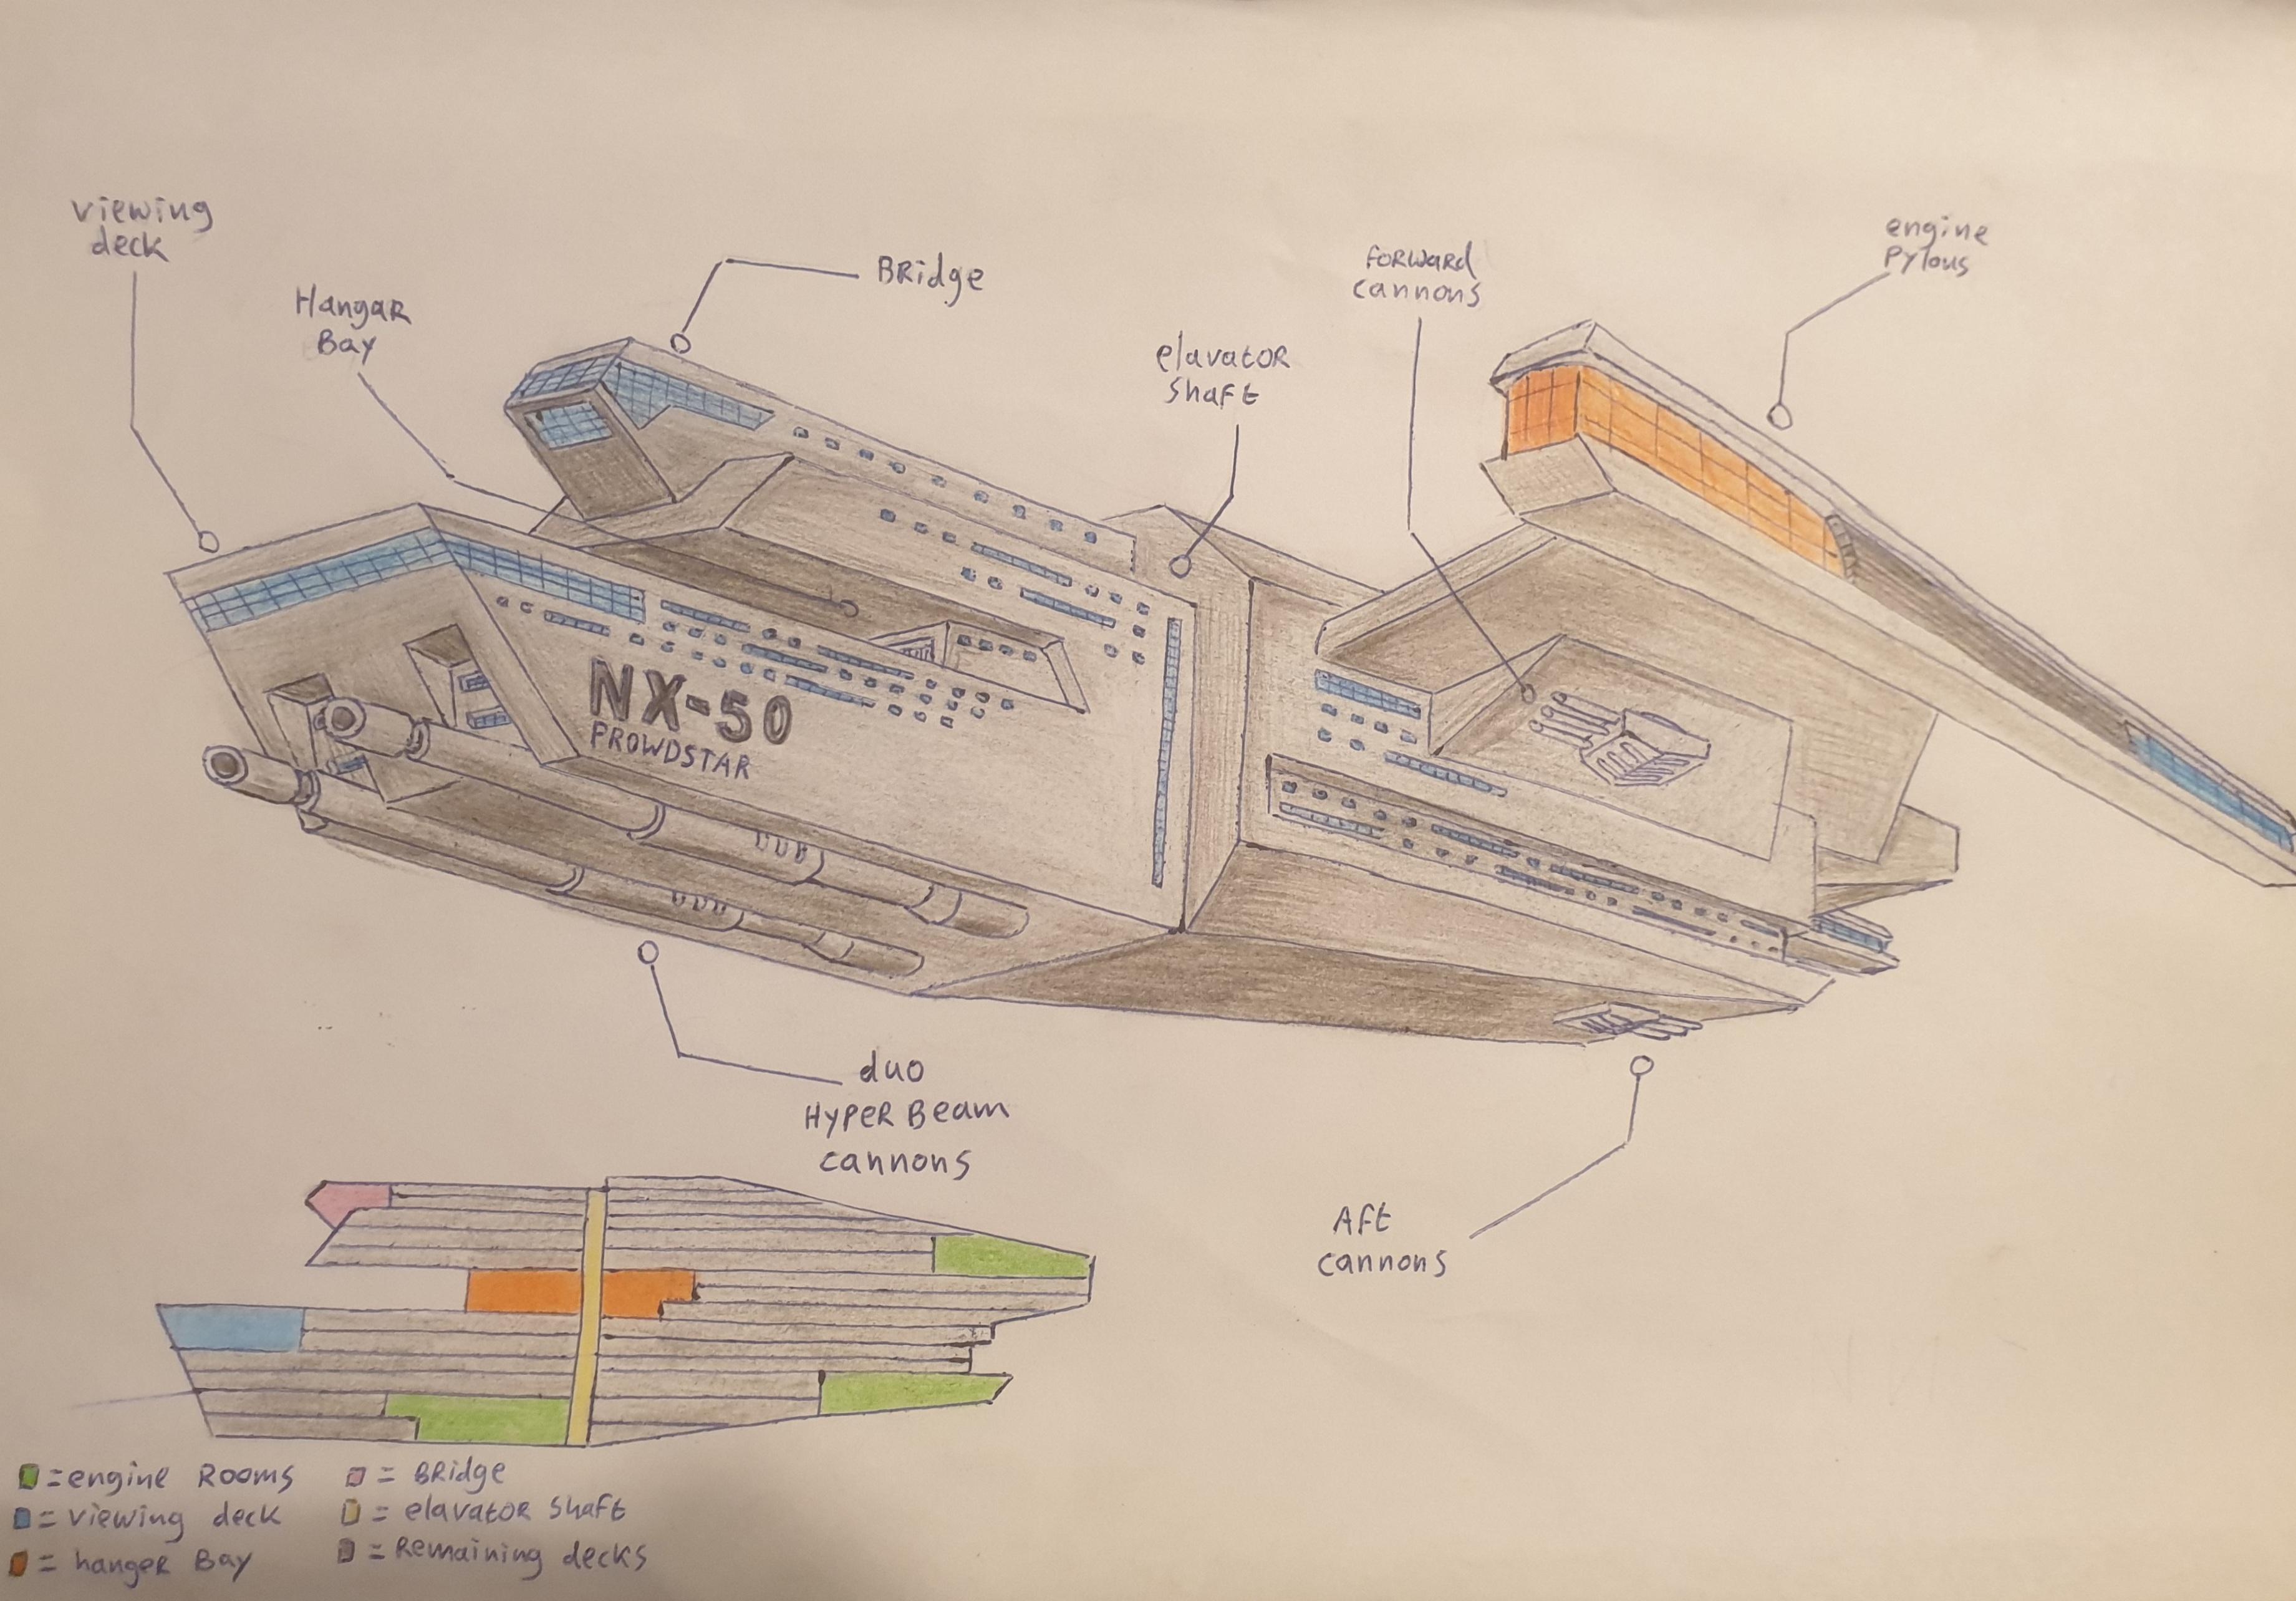 viewing
deck
Hangar
Bay
Bridge
elavator
shaft
forward
cannons
engine
Pylons
NX-50
PROWDSTAR
duo
Hyper Beam
cannons
Aft
cannons
=engine Rooms
= Bridge
= viewing deck
= elavator shaft
= hanger Bay
= Remaining decks